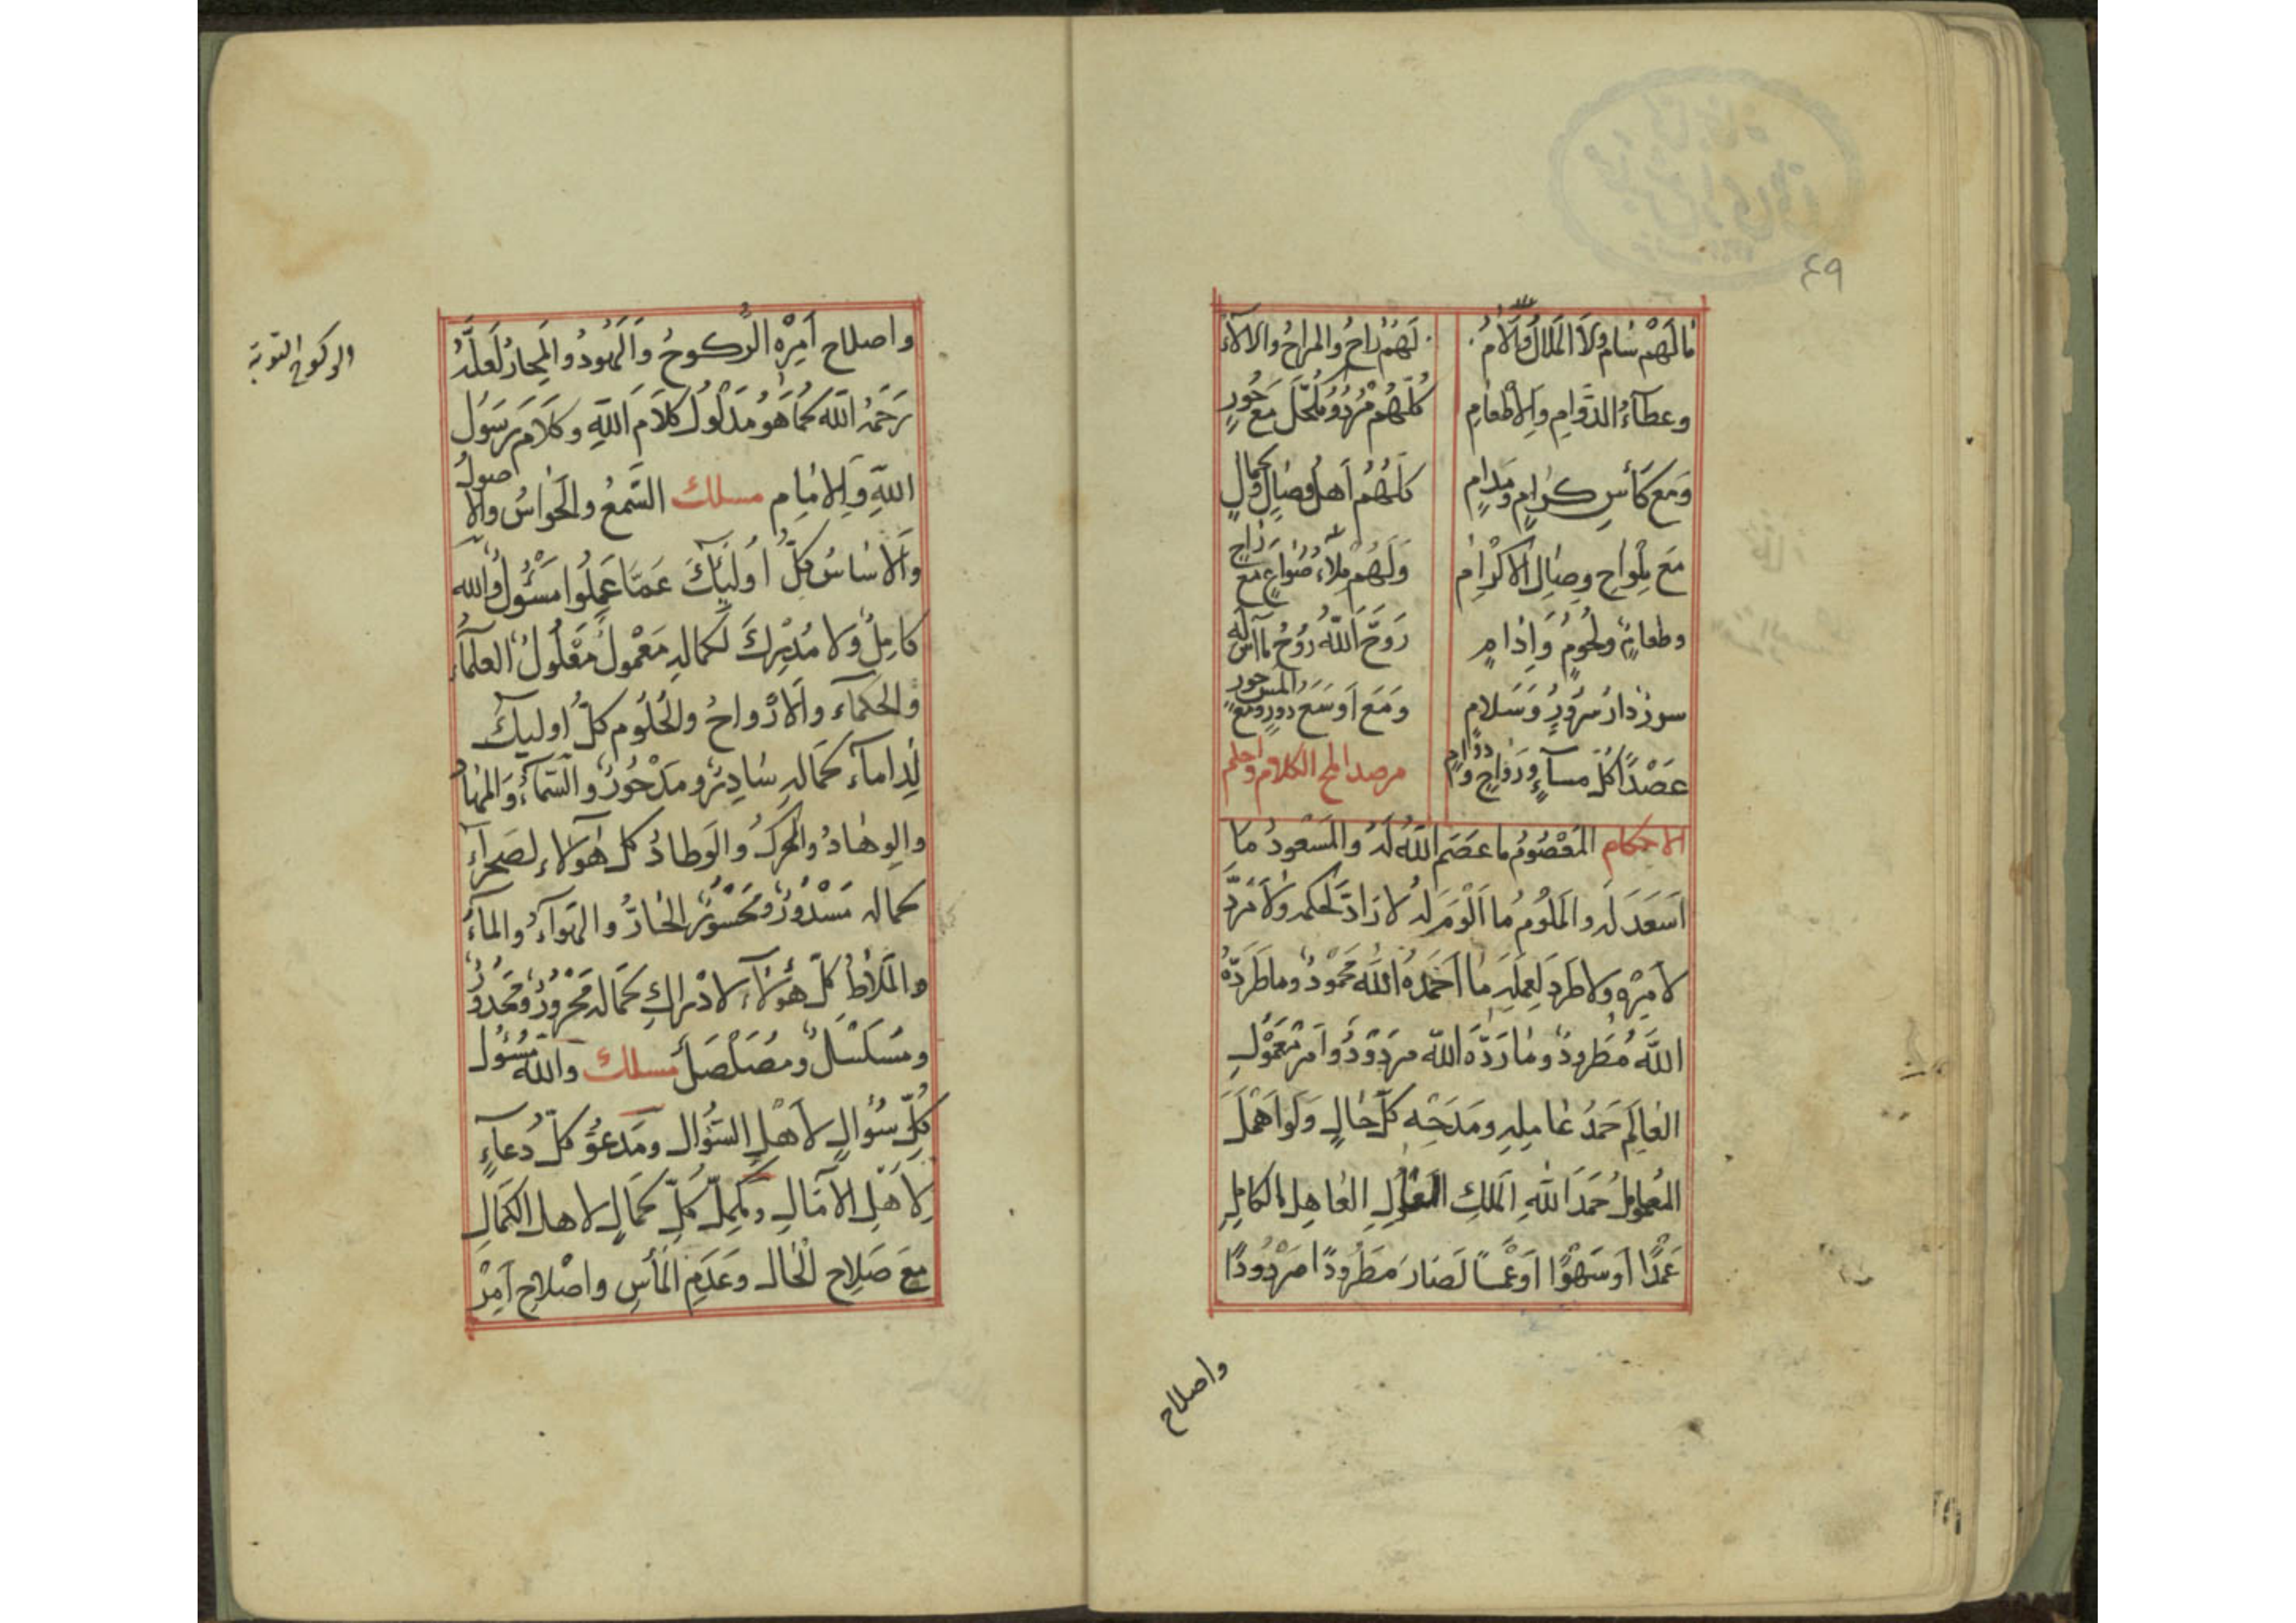 ٤٩
ما لهم سام ولا الملال والآلام
لهم راح والمراح والالآء
وعطآء الدوام والاطعام
كلهم مرد وملحل مع حور
ومع كأس كرام ومدام
كلهم أهل وصال وكمال
مع ملواح وصال الاكرام
ولهم ملاء صواع مع راح
وطعام ولحوم وادام
روح الله روح ما اس له
سور دار سرور وسلام
ومع اوسع دور ومع المس حور
عصدا كل مسآء ورواح ودوام
مرصد الح الكلام واحلم
الاحكام المعصوم ما عصم الله له والمسعود ما
اسعد له والملوم ما الوم له لا راد لحكمه ولا مرد
لامره ولا طرد لعمله ما احمده الله محمود وما طرده
الله مطرود وما رده الله مردود وامر معمول
العالم حمد عامله ومدحه كل حال ولو اهمل
المعمول حمد الله الملك العاهل الكامل
عمدا او سهوا او عمسا لصار مطرودا مردودا
واصلاح
واصلاح امره الركوح والهود والمحار لعله
رحمه الله كما هو مدلول كلام الله وكلام رسول
الله والامام مسلك السمع والحواس والاصول
والاساس كل اولئك عما عملوا مسئول والله
كامل ولا مدرك لكماله معمول معلول العلماء
والحكماء والارواح والحلوم كل اولئك
لداماء كماله سادر ومدحور والسمآء والمهاد
والوهاد والحرك والوطاد كل هولاء لصحرآء
كماله مسدود ومحسور الحار والهوآء والمآء
والملاط كل هولاء لادراك كماله محرود ومحدود
ومسلسل ومصلصل مسلك والله مسئول
كل سؤال لاهل السؤال ومدعو كل دعآء
لاهل الآمال ومكمل كل كمال لاهل الكمال
مع صلاح الحال وعدم المأس واصلاح امر
الركوح التوبة